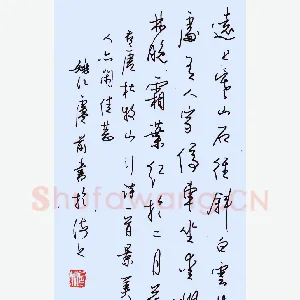 遠上寒山石徑斜白雲生
處有人家停車坐愛楓
林晚霜葉红於二月花
唐杜牧山行诗一首景美
人亦佳
書於
Shufawang.CN